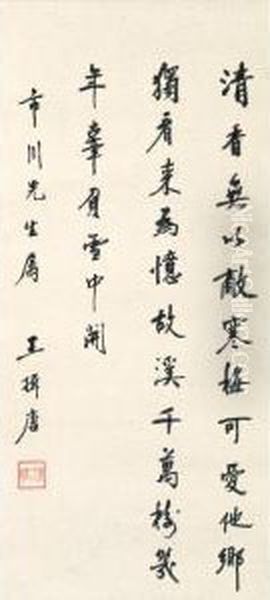 清香無以敵寒梅可愛他鄉
獨看來為憶故溪千萬樹幾
年辜負雪中開
市川先生屬 王揖唐